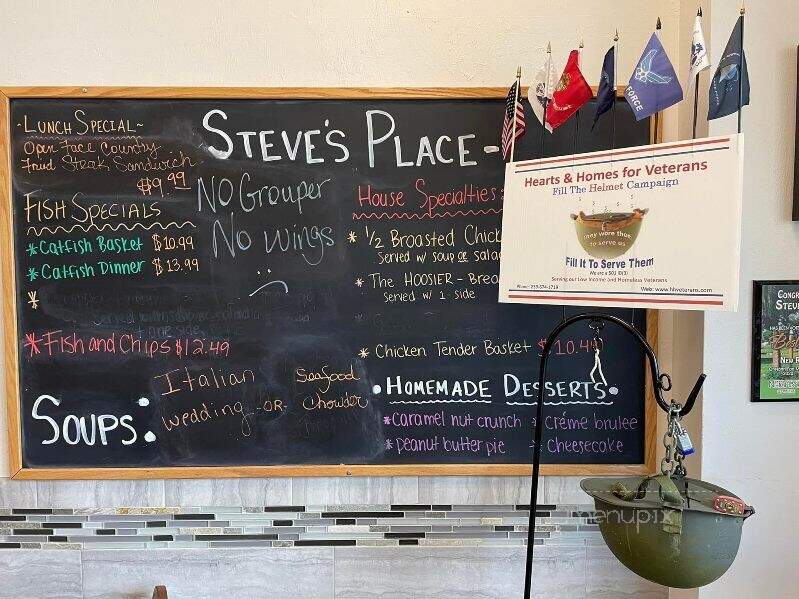 ~LUNCH SPECIAL~
Open Face Country
Fried Steak Sandwich
$9.99
FISH SPECIALS
*Catfish Basket $10.99
*Catfish Dinner $13.99
*
Served with
1 one side,
*Fish and Chips $12.49
SOUPS:
Italian
wedding -OR-
Seafood
Chowder
STEVE'S PLACE~
NO Grouper
No wings
House Specialties:
* 1/2 Broasted Chick
Served w/ soup or salad
* The HOOSIER - Brea
Served w/ 1 side
* Chicken Tender Basket $10.49
• HOMEMADE DESSERTS•
*caramel nut crunch * créme brulee
*peanut butter pie * cheesecake
FORCE
Hearts & Homes for Veterans
Fill The Helmet Campaign
$ $ $ $ $
They wore them
to serve us
Fill It To Serve Them
We are a 501 (C)(3)
Serving our Low Income and Homeless Veterans
Web: www.hhveterans.com
CONGR
STEV
HAS BEEN
Best
menupix